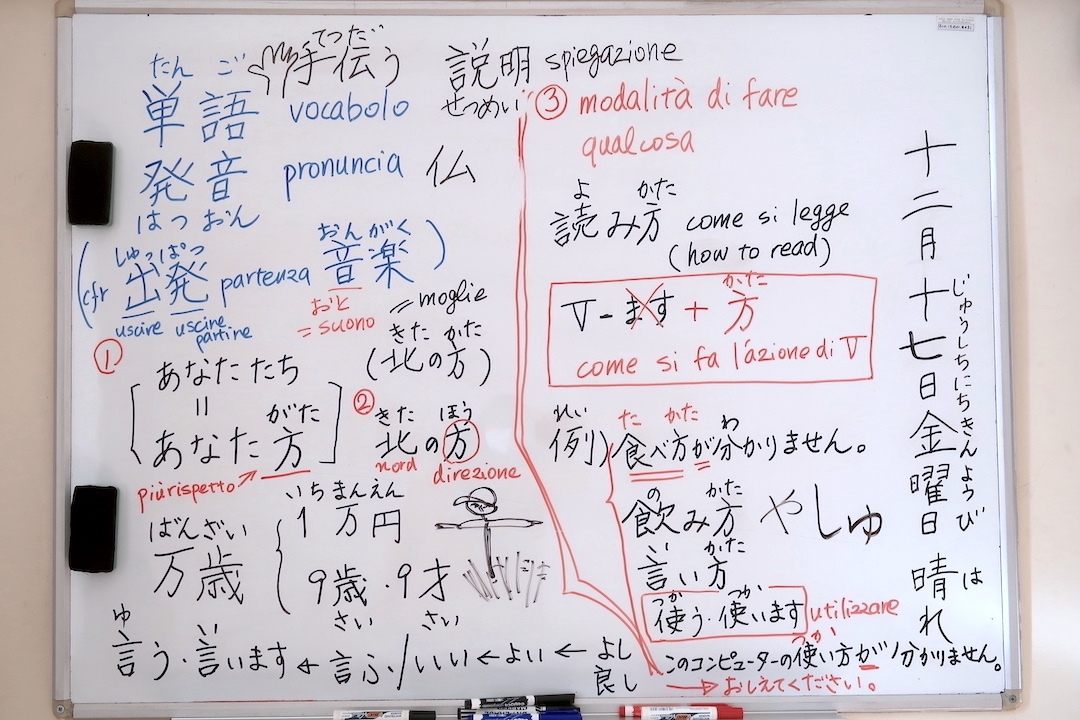 てつだ
手伝う
説明 spiegazione
せつめい
たん ご
単語 vocabolo
発音 pronuncia 仏
はつおん
しゅっぱつ おんがく
(cfr 出発 partenza 音楽)
uscire uscire partire
おと
= suono
= moglie
きた かた
(北の方)
①
あなたたち
=
がた
あなた方
più rispetto
②
きた ほう
北の方
nord direzione
ばんざい
万歳
いちまんえん
1万円
9歳・9才
さい さい
ゆ い
言う・言います ← 言ふ / いい ← よい ← よし
良し
③ modalità di fare
qualcosa
よ かた
読み方 come si legge
(how to read)
かた
V-ます + 方
come si fa l'azione di V
れい た かた わ
例) 食べ方が分かりません。
の かた
飲み方 や しゅ
い かた
言い方
つか つか
使う・使います utilizzare
つか
このコンピューターの使い方が分かりません。
→ おしえてください。
十二月十七日金曜日 晴れ
じゅうしちにちきんようび は